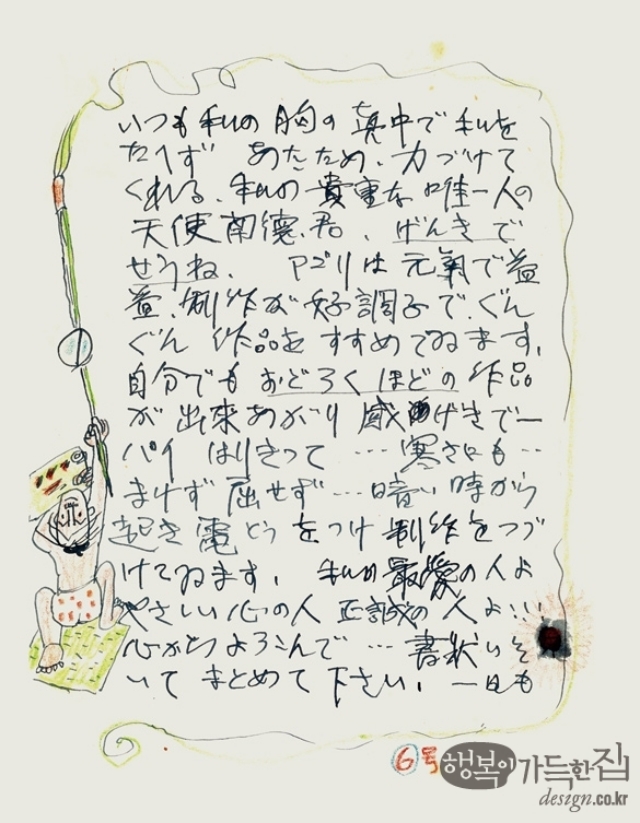 いつも私の胸の真中で私を
たへず あたため、力づけて
くれる、私の貴重な唯一人の
天使南徳君、げんきで
せうね、 アゴリは元氣で益
益、制作が好調子で、ぐん
ぐん 作品をすすめてゐます。
自分でもおどろくほどの作品
が出来あがり 感げきで一
パイ はりきって…寒さにも…
まけず 屈せず…暗い時から
起き電とうをつけ制作をつづ
けてゐます。 私の最愛の人よ
やさしい心の人 正誠の人よ…
心からよろこんで…書状いそ
いでまとめて下さい。一日も
6号
행복이가득한집
design.co.kr